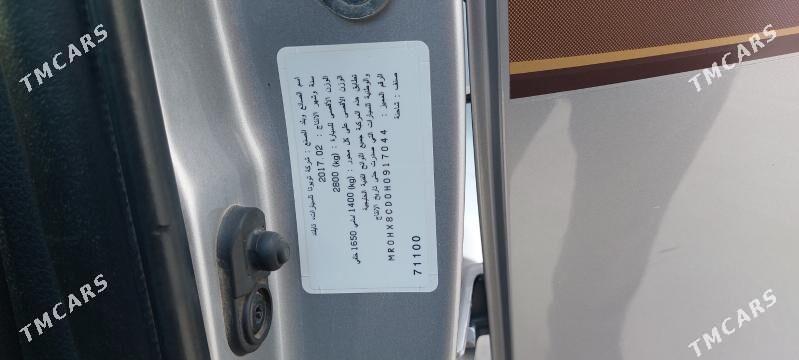 اسم الصانع وبلد الصنع : شركة تويوتا للسيارات، تايلند
سنة وشهر الانتاج : 2017.02
الوزن الأقصى للسيارة : 2800 (kg)
الوزن الأقصى على كل محور : 1400 (kg) امامي 1650 خلفي
تطابق هذه المركبة جميع اللوائح الفنية الخليجية
والوطنية للسيارات التي صدرت حتى تاريخ الانتاج
الرقم المميز : MR0HX8CD0H0917044
صنف : شاحنة
71100
TMCARS
TMCARS
TMCARS
TMCARS